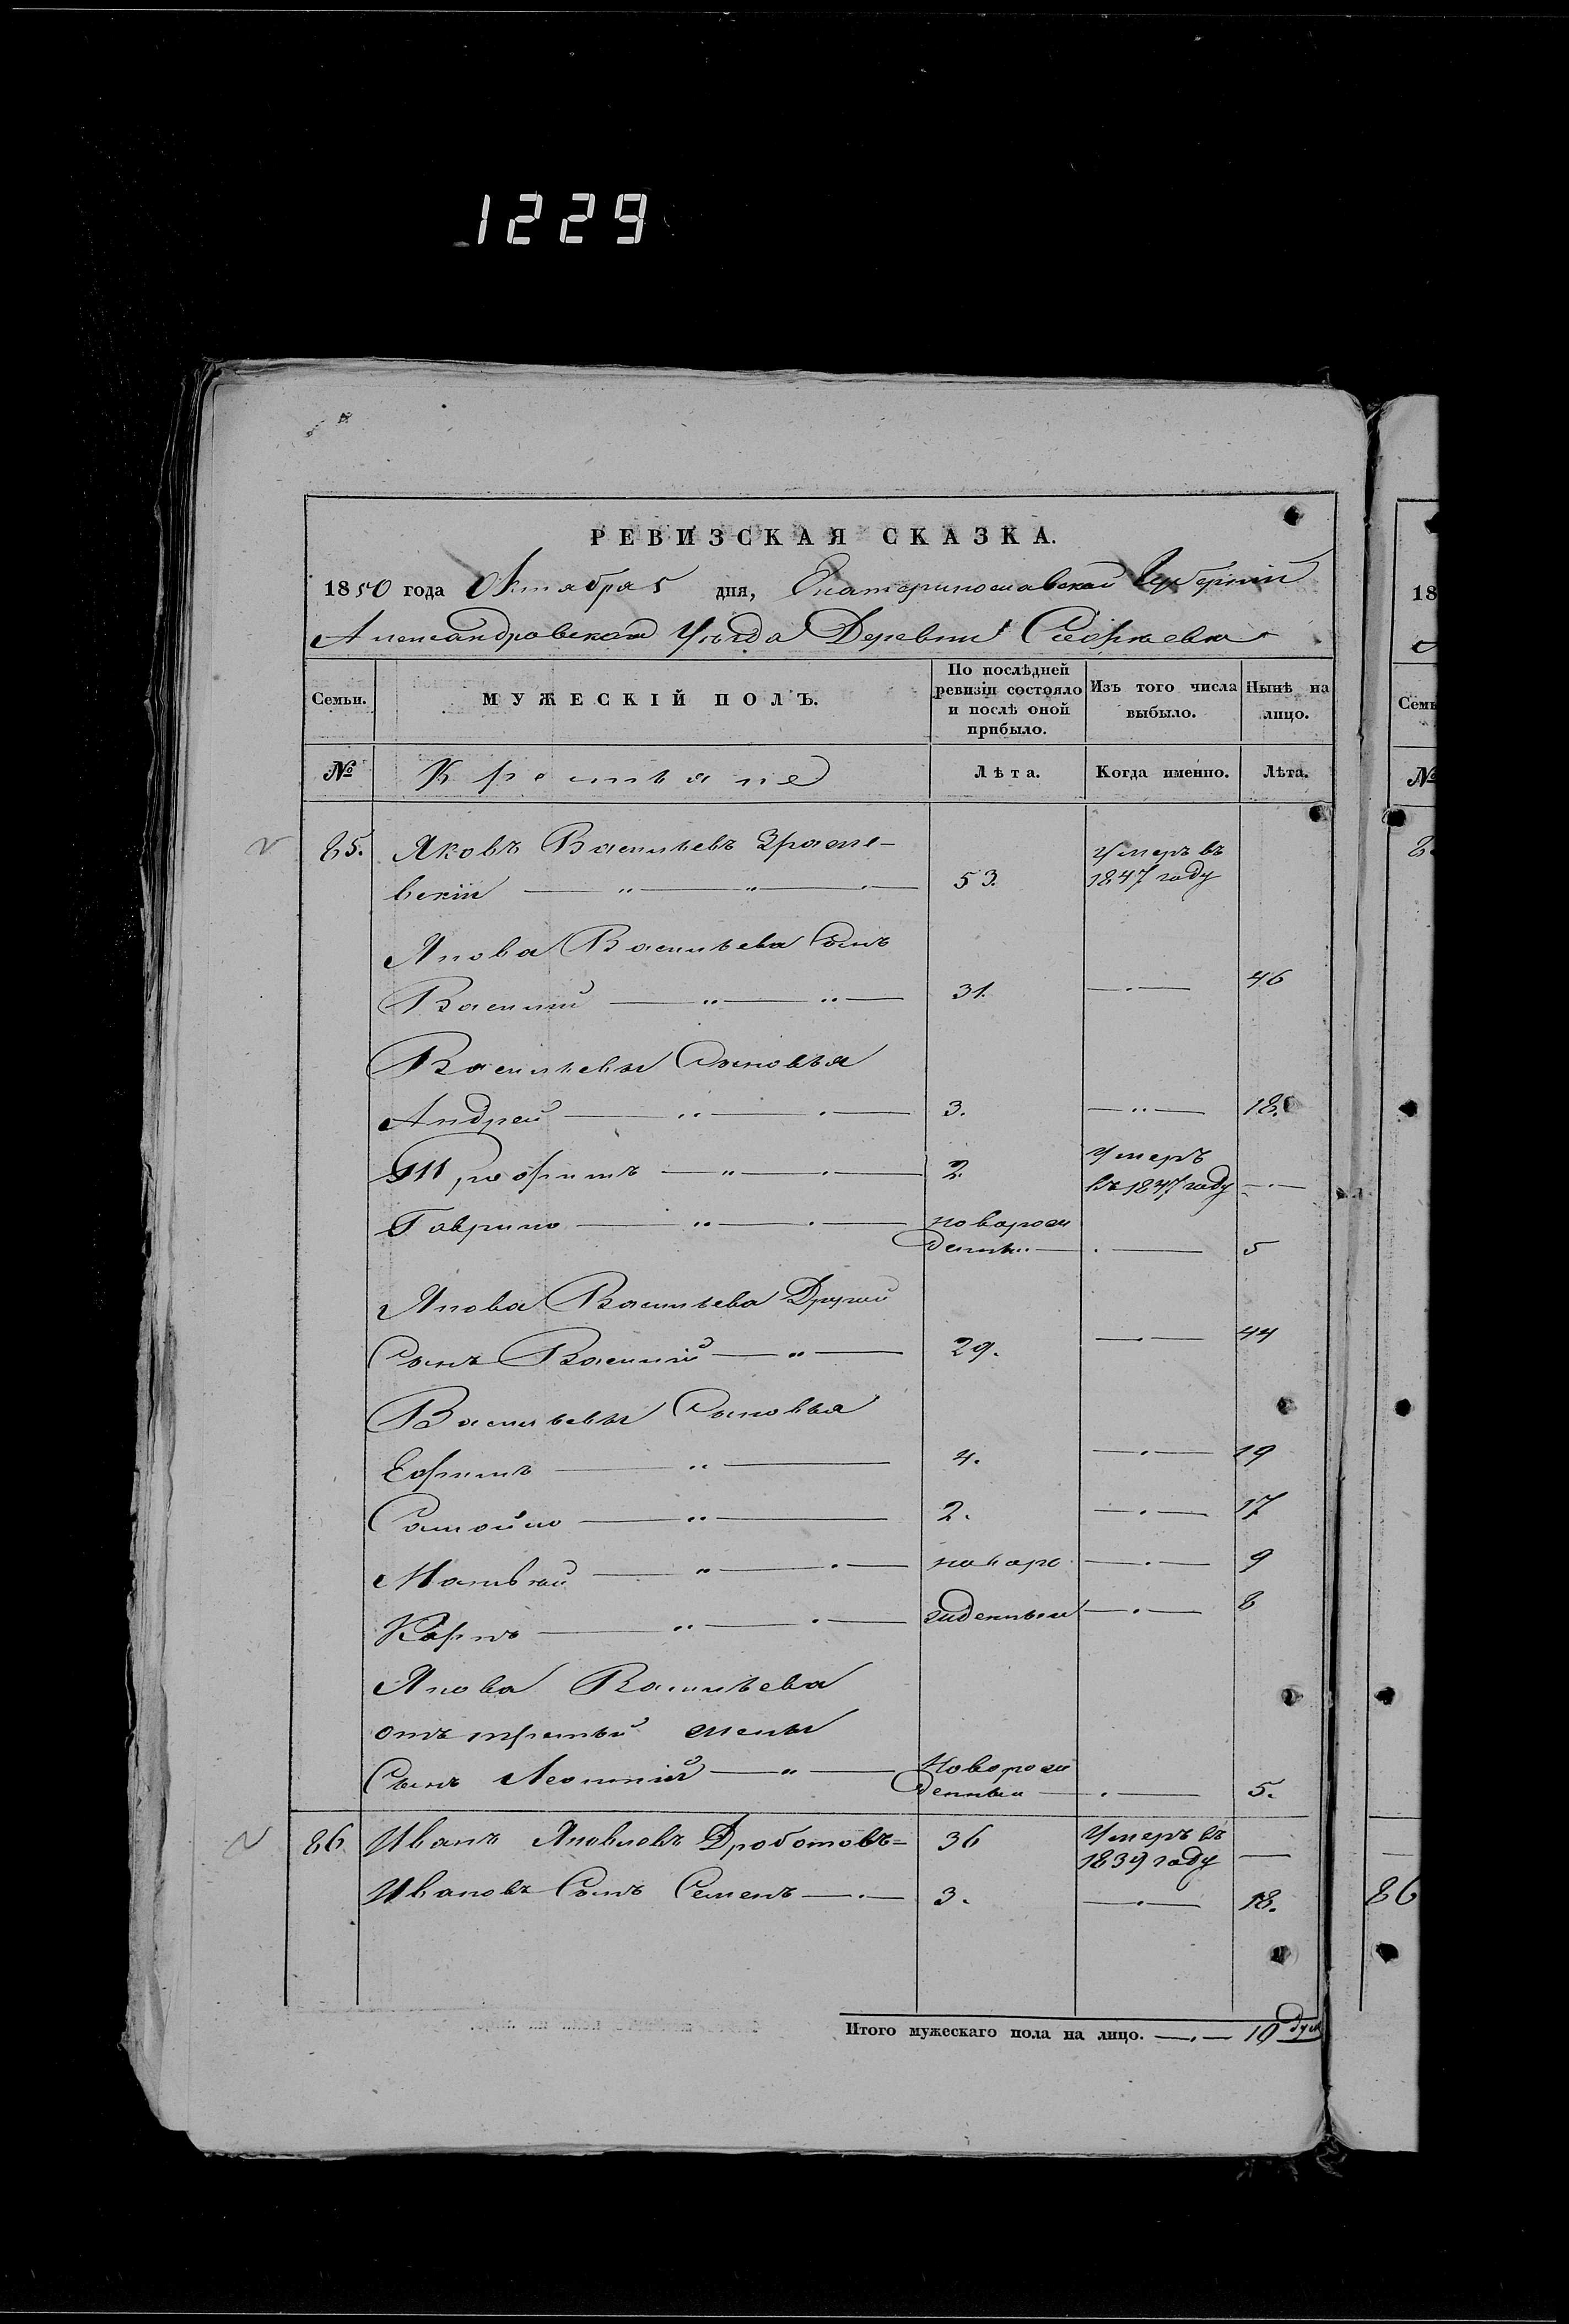 1229
РЕВИЗСКАЯ СКАЗКА.
1850 года Октября 5 дня, Екатеринославской Губерніи
Александровскаго Уѣзда Деревни
Семьи. МУЖЕСКІЙ ПОЛЪ. По послѣдней ревизіи состояло и послѣ оной прибыло. Изъ того числа выбыло. Нынѣ на лицо.
№ Крестьяне Лѣта. Когда именно. Лѣта.
85. Яковъ Васильевъ Зраже-
вскій 53. Умеръ въ 1847 году
Якова Васильева Сынъ
Василий 31. 46
Васильевы Сыновья
Андрей 3. 18.
Трофимъ 2. Умеръ въ 1847 году
Гаврило новорож денны 5
Якова Васильева Другий
Сынъ Василий 29. 44
Васильевы Сыновья
Ефимъ 4. 19
Самойло 2. 17
Матвѣй новоро 9
Карпъ жденныи 8
Якова Васильева
отъ третьй жены
Сынъ Леонтий Новорож денныи 5.
86 Иванъ Яковлевъ Дроботовъ= 36 Умеръ въ 1839 году
Ивановъ Сынъ Семенъ 3. 18.
Итого мужескаго пола на лицо. 10 душ
18
Семь
№
86